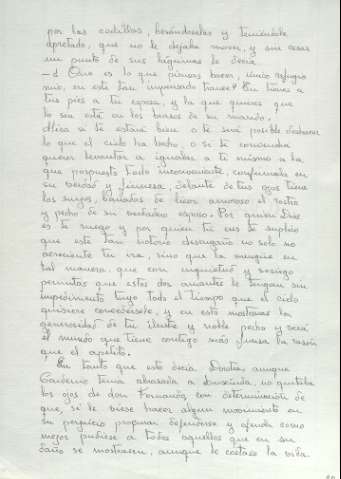 por las rodillas, besándoselas y teniéndole
apretado, que no le dejaba mover, y sin cesar
un punto de sus lágrimas le decía:
—¿Qué es lo que piensas hacer, único refugio
mío, en este tan impensado trance? Tú tienes a
tus pies a tu esposa, y la que quieres que
lo sea está en los brazos de su marido.
Mira si te estará bien o te será posible deshacer
lo que el cielo ha hecho, o si te convendrá
querer levantar a igualar a ti mismo a la
que pospuesto todo inconveniente, confirmada en
su verdad y firmeza, delante de tus ojos tiene
los suyos, bañados de licor amoroso el rostro
y pecho de su verdadero esposo. Por quien Dios
es te ruego y por quien tú eres te suplico
que este tan notorio desengaño no sólo no
acreciente tu ira, sino que la mengüe en
tal manera, que con quietud y sosiego
permitas que estos dos amantes le tengan sin
impedimento tuyo todo el tiempo que el cielo
quisiere concedérsele, y en esto mostrarás la
generosidad de tu ilustre y noble pecho y verá
el mundo que tiene contigo más fuerza la razón
que el apetito.
En tanto que esto decía Dorotea, aunque
Cardenio tenía abrazada a Luscinda, no quitaba
los ojos de don Fernando, con determinación de
que, si le viese hacer algún movimiento en
su perjuicio, procurar defenderse y ofender como
mejor pudiese a todos aquellos que en su
daño se mostrasen, aunque le costase la vida.